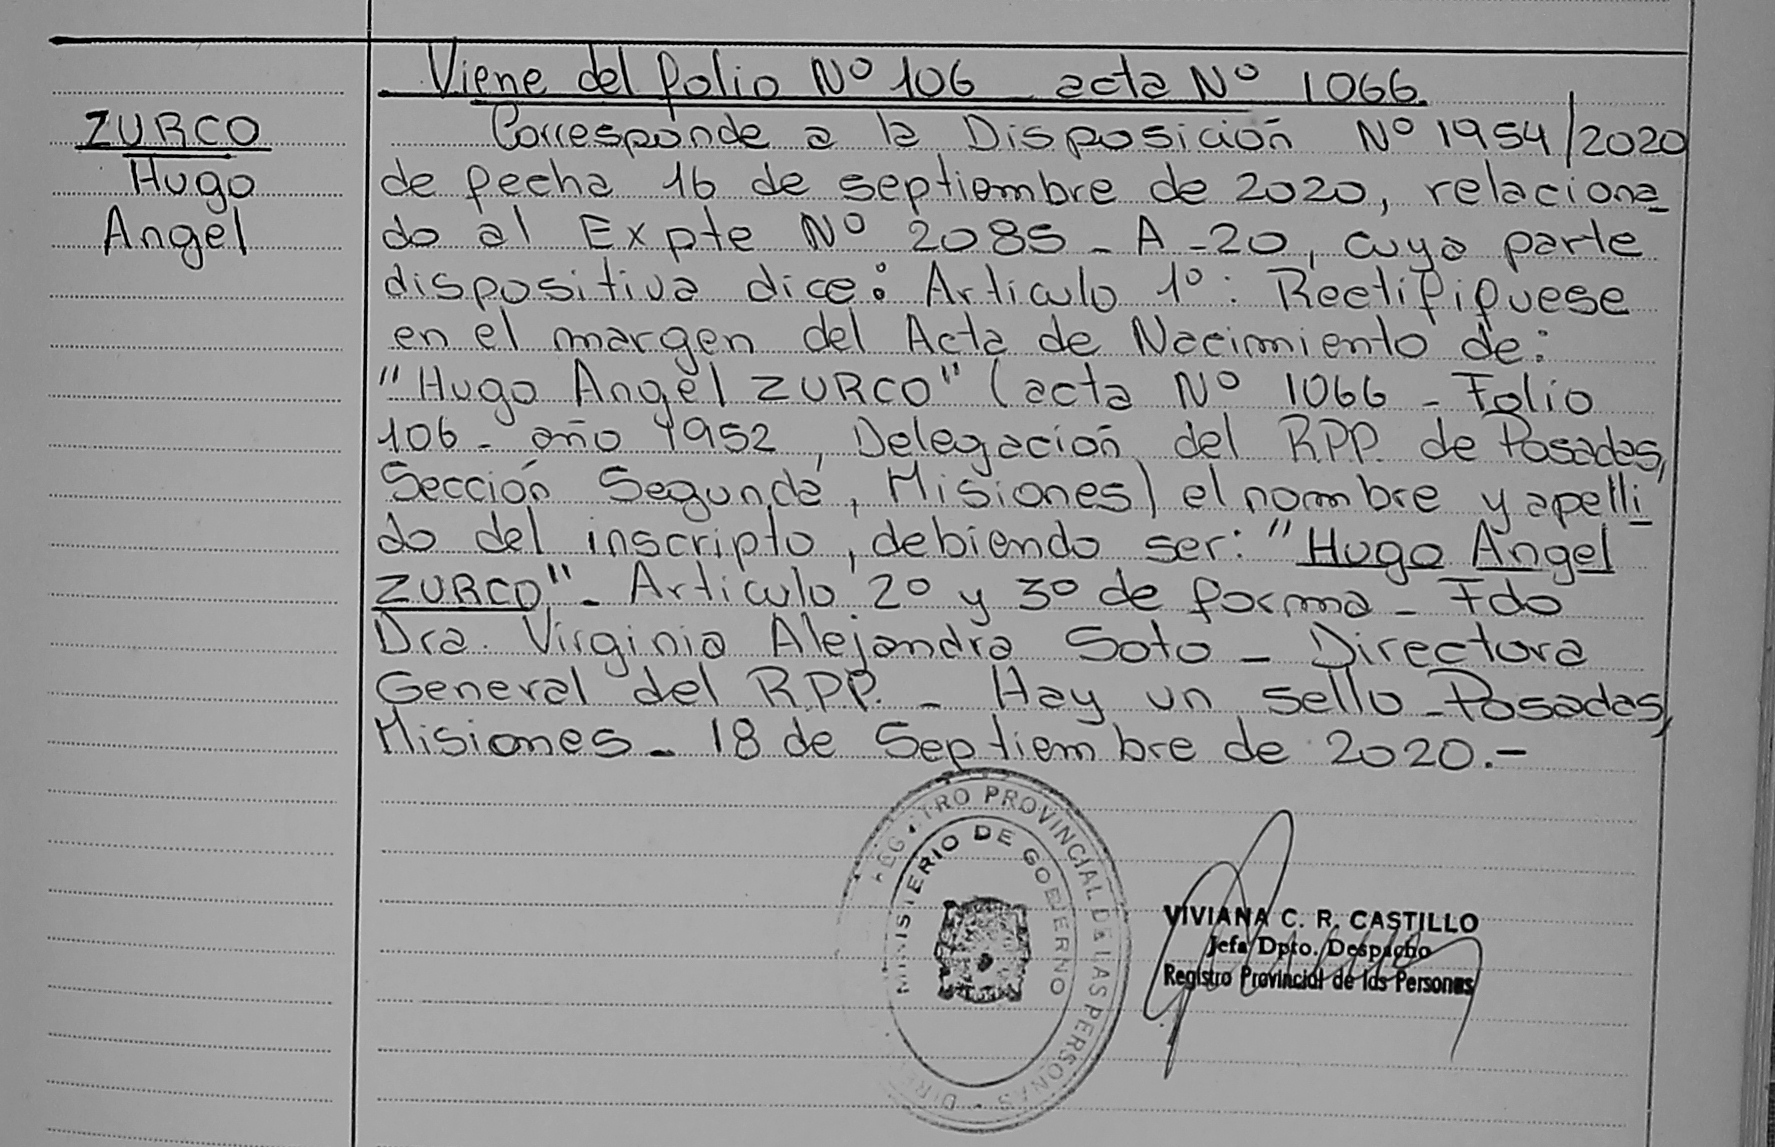 Viene del folio Nº 106 acta Nº 1066.
ZURCO
Hugo
Angel
Corresponde a la Disposición Nº 1954/2020
de fecha 16 de septiembre de 2020, relaciona_
do al Expte Nº 2085 - A - 20, cuya parte
dispositiva dice: Articulo 1º: Rectifiquese
en el margen del Acta de Nacimiento de:
"Hugo Angel ZURCO" (acta Nº 1066 - Folio
106 - año 1952, Delegación del R.P.P. de Posadas,
Sección Segunda, Misiones) el nombre y apelli_
do del inscripto, debiendo ser: "Hugo Angel
ZURCO" - Articulo 2º y 3º de forma - Fdo
Dra. Virginia Alejandra Soto - Directora
General del R.P.P. - Hay un sello - Posadas,
Misiones - 18 de Septiembre de 2020.-
REGISTRO PROVINCIAL DE LAS PERSONAS
MINISTERIO DE GOBIERNO
VIVIANA C. R. CASTILLO
Jefa Dpto. Despacho
Registro Provincial de las Personas